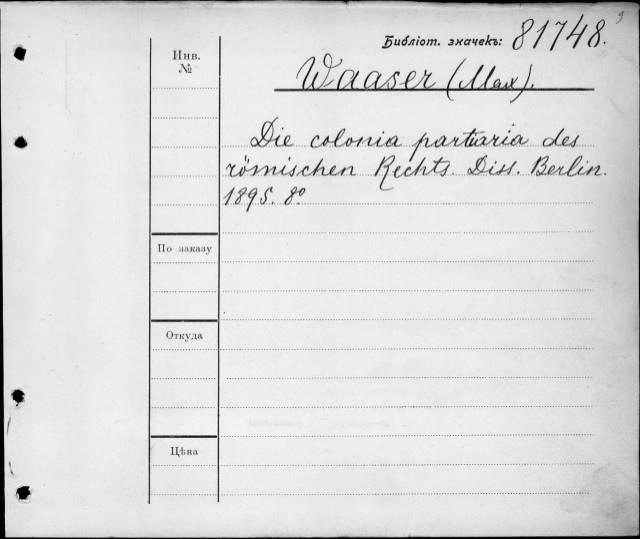 9
Библіот. значекъ: 81748.
Инв.
№
Waaser (Max).
Die colonia partiaria des
römischen Rechts. Diss. Berlin.
1895. 8º
По заказу
Откуда
Цѣна